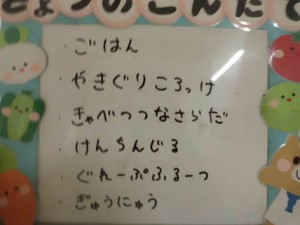 きょうのこんだて
・ごはん
・やきぐりころっけ
・きゃべつつなさらだ
・けんちんじる
・ぐれーぷふるーつ
・ぎゅうにゅう